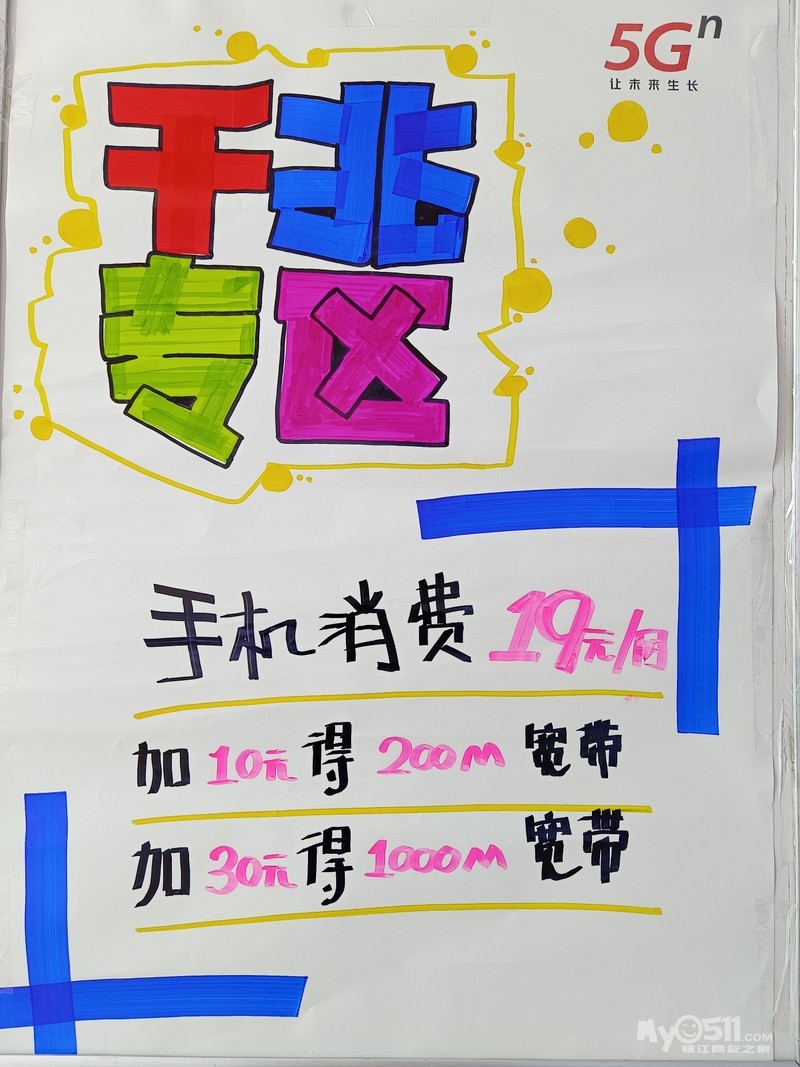 5Gⁿ
让未来生长
千兆
专区
手机消费19元/月
加10元得200M宽带
加30元得1000M宽带
My0511.COM
镇江网友之家